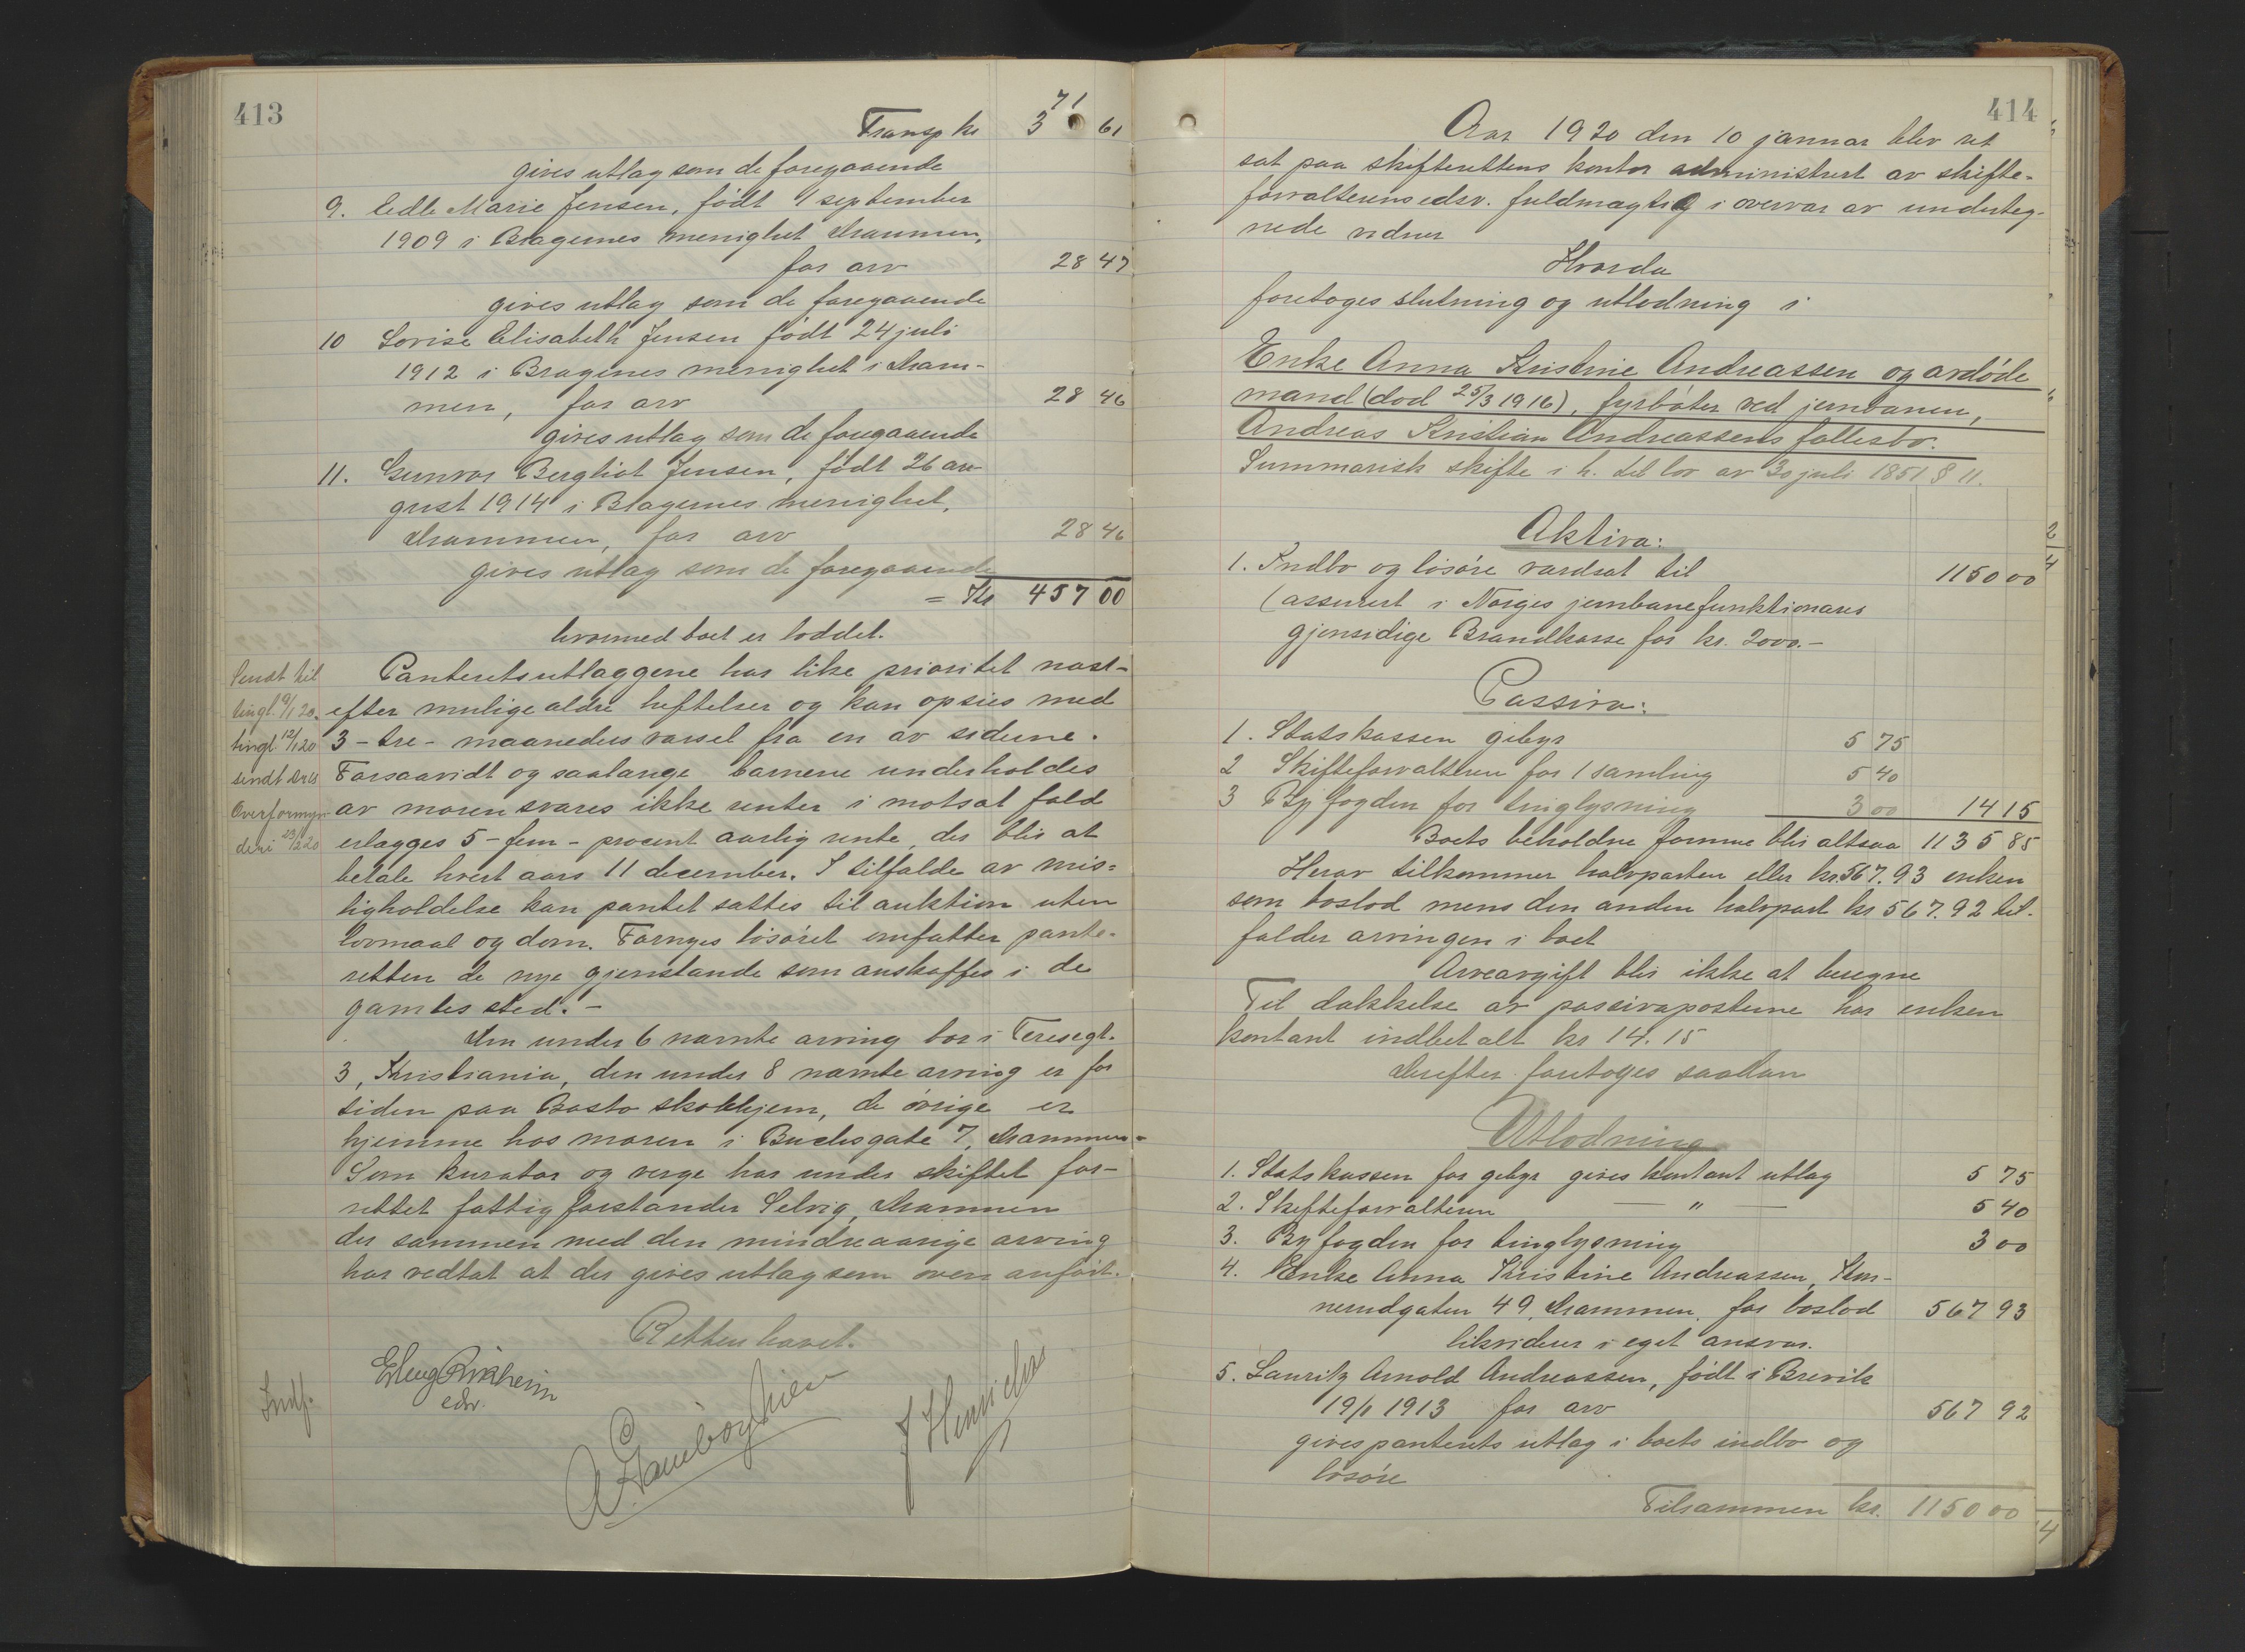 413
Transp kr 371 61
gives utlag som de foregaaende
9. Edle Marie Jensen, født 9 september
1909 i Bragernes menighet Drammen,
for arv 28 47
gives utlag som de foregaaende
10 Lovise Elisabeth Jensen født 24 juli
1912 i Bragernes menighet i Dram-
men, for arv 28 46
gives utlag som de foregaaende
11. Gunvor Bergliot Jensen, født 26 au-
gust 1914 i Bragernes menighet,
Drammen, for arv 28 46
gives utlag som de foregaaende
= Kr 457 00
hvormed boet er loddet.
Panteretsutlæggene har like prioritet næst-
efter mulige ældre heftelser og kan opsies med
3 - tre - maaneders varsel fra en av siderne.
Forsaavidt og saalænge barnene underholdes
av moren svares ikke renter i motsat fald
erlægges 5 - fem - procent aarlig rente, der blir at
betale hvert aars 11 december. I tilfælde av mis=
ligholdelse kan pantet sættes til auktion uten
lovmaal og dom. Fornyes løsøret omfatter pante-
retten de nye gjenstande som anskaffes i de
gamles sted. -
Den under 6 nævnte arving bor i Teresegt.
3, Kristiania, den under 8 nævnte arving er for
tiden paa Bastø skolehjem, de øvrige er
hjemme hos moren i Buchsgate 7, Drammen-
Som kurator og verge har under skiftet for-
rettet fattigforstander Selvig, Drammen
der sammen med den mindreaarige arving
har vedtat at der gives utlæg som oven anført.
Retten hævet.
Sendt til
tingl. 9/1 20.
tingl. 12/1 20
sendt Drs
Overformyn-
deri 23/2 20
Erling Rikheim
edsv.
J Henrichs
414
Aar 1920 den 10 januar blev ret
sat paa skifterettens kontor administrert av skifte-
forvalterens edsv. fuldmægtig i overvær av underteg-
nede vidner
Hvorda
foretoges slutning og utlodning i
Enke Anna Kristine Andreassen og avdøde
mand (død 25/3 1916), fyrbøter ved jernbanen,
Andreas Kristian Andreassens fællesbo.
Summarisk skifte i h. til lov av 30 juli 1851 § 11.
Aktiva:
1. Indbo og løsøre værdsat til 1150 00
(assurert i Norges jernbanefunktionærers
gjensidige Brandkasse for kr. 2000.-
Passiva:
1. Statskassen gebyr 5 75
2 Skifteforvalteren for 1 samling 5 40
3 Byfogden for tinglysning 3 00 14 15
Boets beholdne formue blir altsaa 1135 85
Herav tilkommer halvparten eller kr. 567.93 enken
som boslod mens den anden halvpart kr 567.92 til-
falder arvingen i boet
Arveavgift blir ikke at beregne
Til dækkelse av passivaposterne har enken
kontant indbetalt kr 14.15
Derefter foretoges saadan
Utlodning
1. Statskassen for gebyr gives kontant utlæg 5 75
2. Skifteforvalteren — " — 5 40
3. Byfogden for tinglysning 3 00
4. Enke Anna Kristine Andreassen, Kon-
nerudgaten 49, Drammen, for boslod 567 93
likviderer i eget ansvar.
5. Lauritz Arnold Andreassen, født i Brevik
19/1 1913 for arv 567 92
gives panterets utlæg i boets indbo og
løsøre
Tilsammen kr. 1150 00